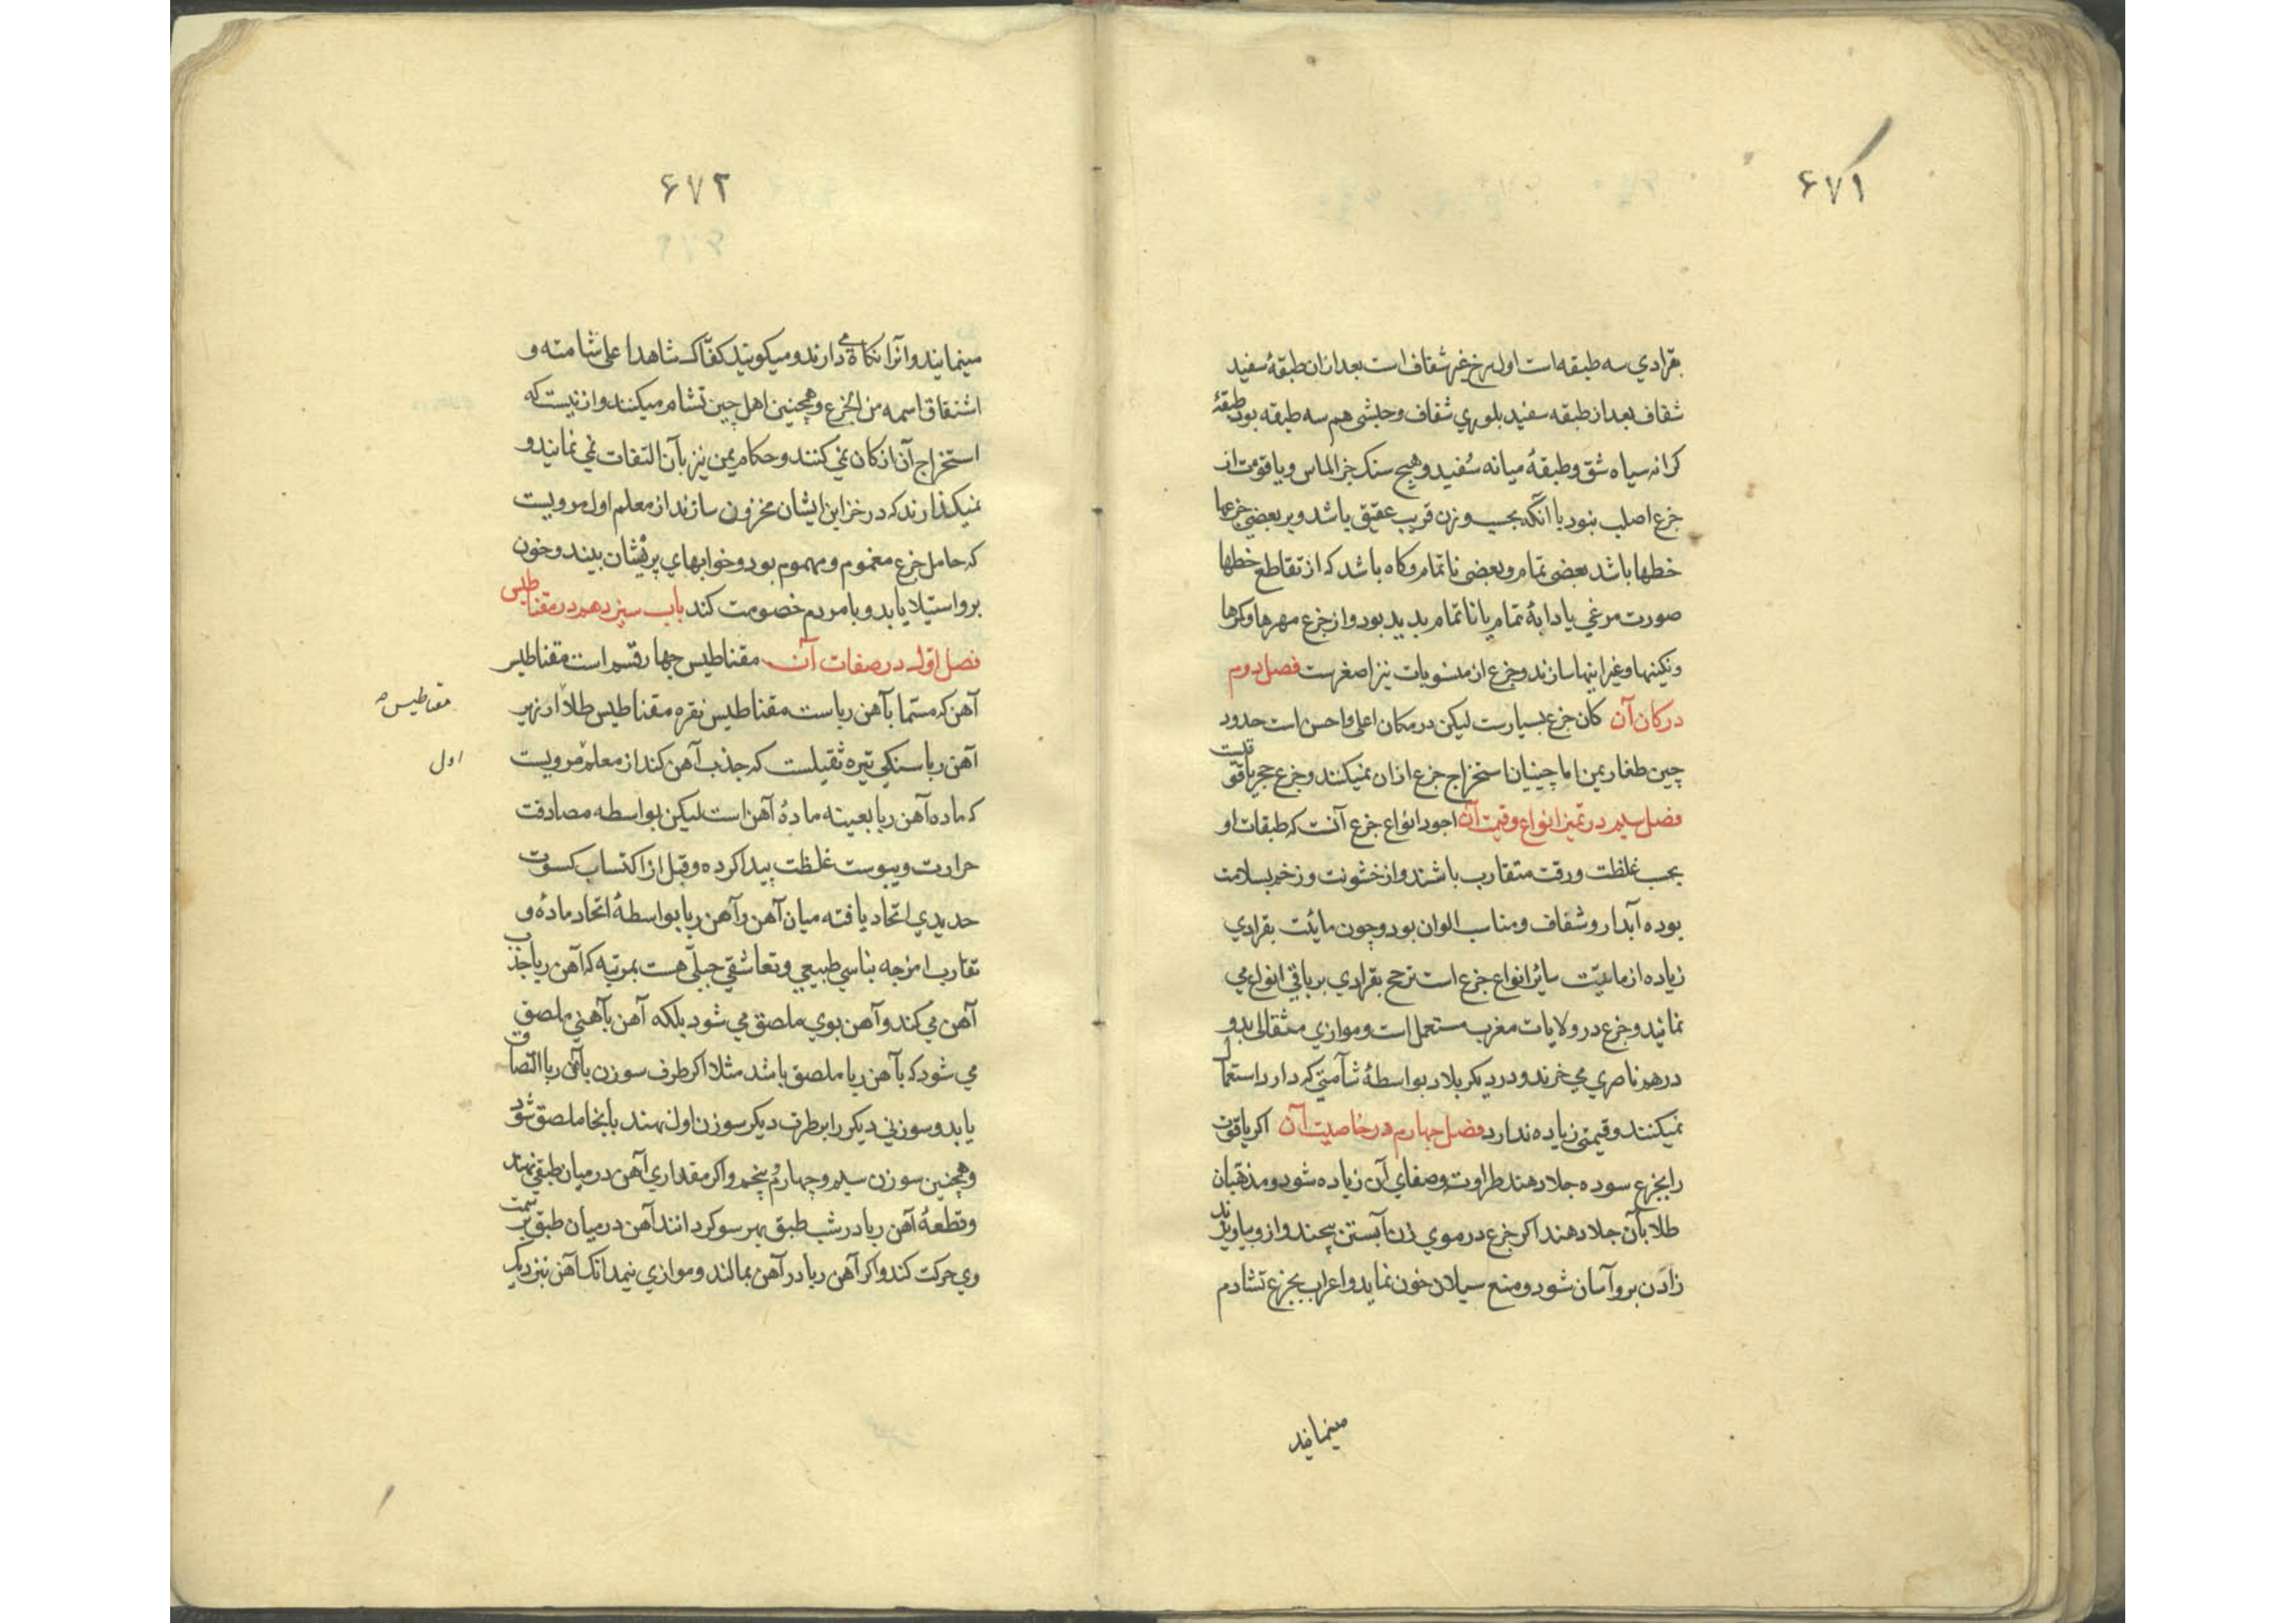 ۶۷۱
بقرادي سه طبقه است اول سرخ غیر شفاف است بعد از ان طبقهٔ سفید
شفاف بعد از طبقه سفید بلوری شفاف و حبشی هم سه طبقه بود طبقهٔ
کرانه سیاه شق و طبقهٔ میانه سفید و هیچ سنک جز الماس و یاقوت از
جزع اصلب نبود با آنکه بحسب وزن قریب عقیق باشد و بر بعضی جزعها
خطها باشد بعضی تمام و بعضی ناتمام و کاه باشد که از تقاطع خطها
صورت مرغي یا دابهٔ تمام یا ناتمام بدید بود و از جزع مهرها و کرها
و نکینها و غیر اینها سازند و جزع از منسوبات نیز اصغرست فصل دوم
در کان آن کان جزع بسیارست لیکن در مکان اعلی و احسن است حدود
چین طغار یمن اما چینیان استخراج جزع از ان نمیکنند و جزع حجر یاقوتست
فصل سیم در تمیز انواع و قیمت آن اجود انواع جزع آنست که طبقات او
بحسب غلظت و رقت متقارب باشند و از خشونت و زخم بسلامت
بوده آبدار و شفاف و مناسب الوان بود و چون مائیت بقرادي
زیاده از مائیت سائر انواع جزع است ترجح بقرادي بر باقي انواع می
نمانید و جزع در ولایات مغرب مستعمل است و موازي مثقالی بدو
درهم ناصري می خرند و در دیکر بلاد بواسطهٔ شآمتي که دارد استعمال
نمیکنند و قیمتی زیاده ندارد فصل چهارم در خاصیت آن اکر یاقوت
را بجزع سوده جلا دهند طراوت و صفای آن زیاده شود و مذهبان
طلا بآن جلا دهند اکر جزع در موي زن آبستن پیچند و از و بیاویزند
زادن برو آسان شود و منع سیلان خون نماید و اعراب بجزع تشادم
مینمایند
۶۷۲
مینمایند و آنرا نکاه می دارند و میکویند کفاک شاهدا علی شامته و
اشتقاق اسمه من الجزع و همچنین اهل چین تشام میکنند و از نیست که
استخراج آن از کان نمی کنند و حکام یمن نیز بآن التفات نمي نمانید و
نمیکذارند که در خزاین ایشان مخزون سازند از معلم اول مرویست
که حامل جزع مغموم و مهموم بود و خوابهاي پریشان بیند و خون
برو استیلا یابد و با مردم خصومت کند باب سیزدهم در مقناطیس
فصل اول در صفات آن مقناطیس چهار قسم است مقناطیس
آهن که مسما بآهن رباست مقناطیس نقره مقناطیس طلا ارزیر
مقناطیس
آهن ربا سنکي تیره ثقیلست که جذب آهن کند از معلم مرویست
اول
که ماده آهن ربا بعینه مادهٔ آهن است لیکن بواسطه مصادفت
حرارت و یبوست غلظت پیدا کرده و قبل از اکتساب کسوت
حدیدي اتحاد یافته میان آهن و آهن ربا بواسطهٔ اتحاد مادهٔ و
تقارب امزجه تناسي طبیعي و تعاشقي جبلی هست بمرتبه که آهن ربا جذب
آهن می کند و آهن بوي ملصق می شود بلکه آهن بآهني ملصق
می شود که بآهن ربا ملصق باشد مثلا اکر طرف سوزن بآهن ربا التصاق
یابد و سوزني دیکر را بر طرف دیکر سوزن اول نهند بانجا ملصق شود
و همچنین سوزن سیم و چهارم و پنجم و اکر مقداري آهن در میان طبقي نهند
و قطعهٔ آهن ربا در شیب طبق بهر سو کردانند آهن در میان طبق بر سمت
وي حرکت کند و اکر آهن ربا در آهن بمالند و موازي نیمدانک آهن نبز دیک